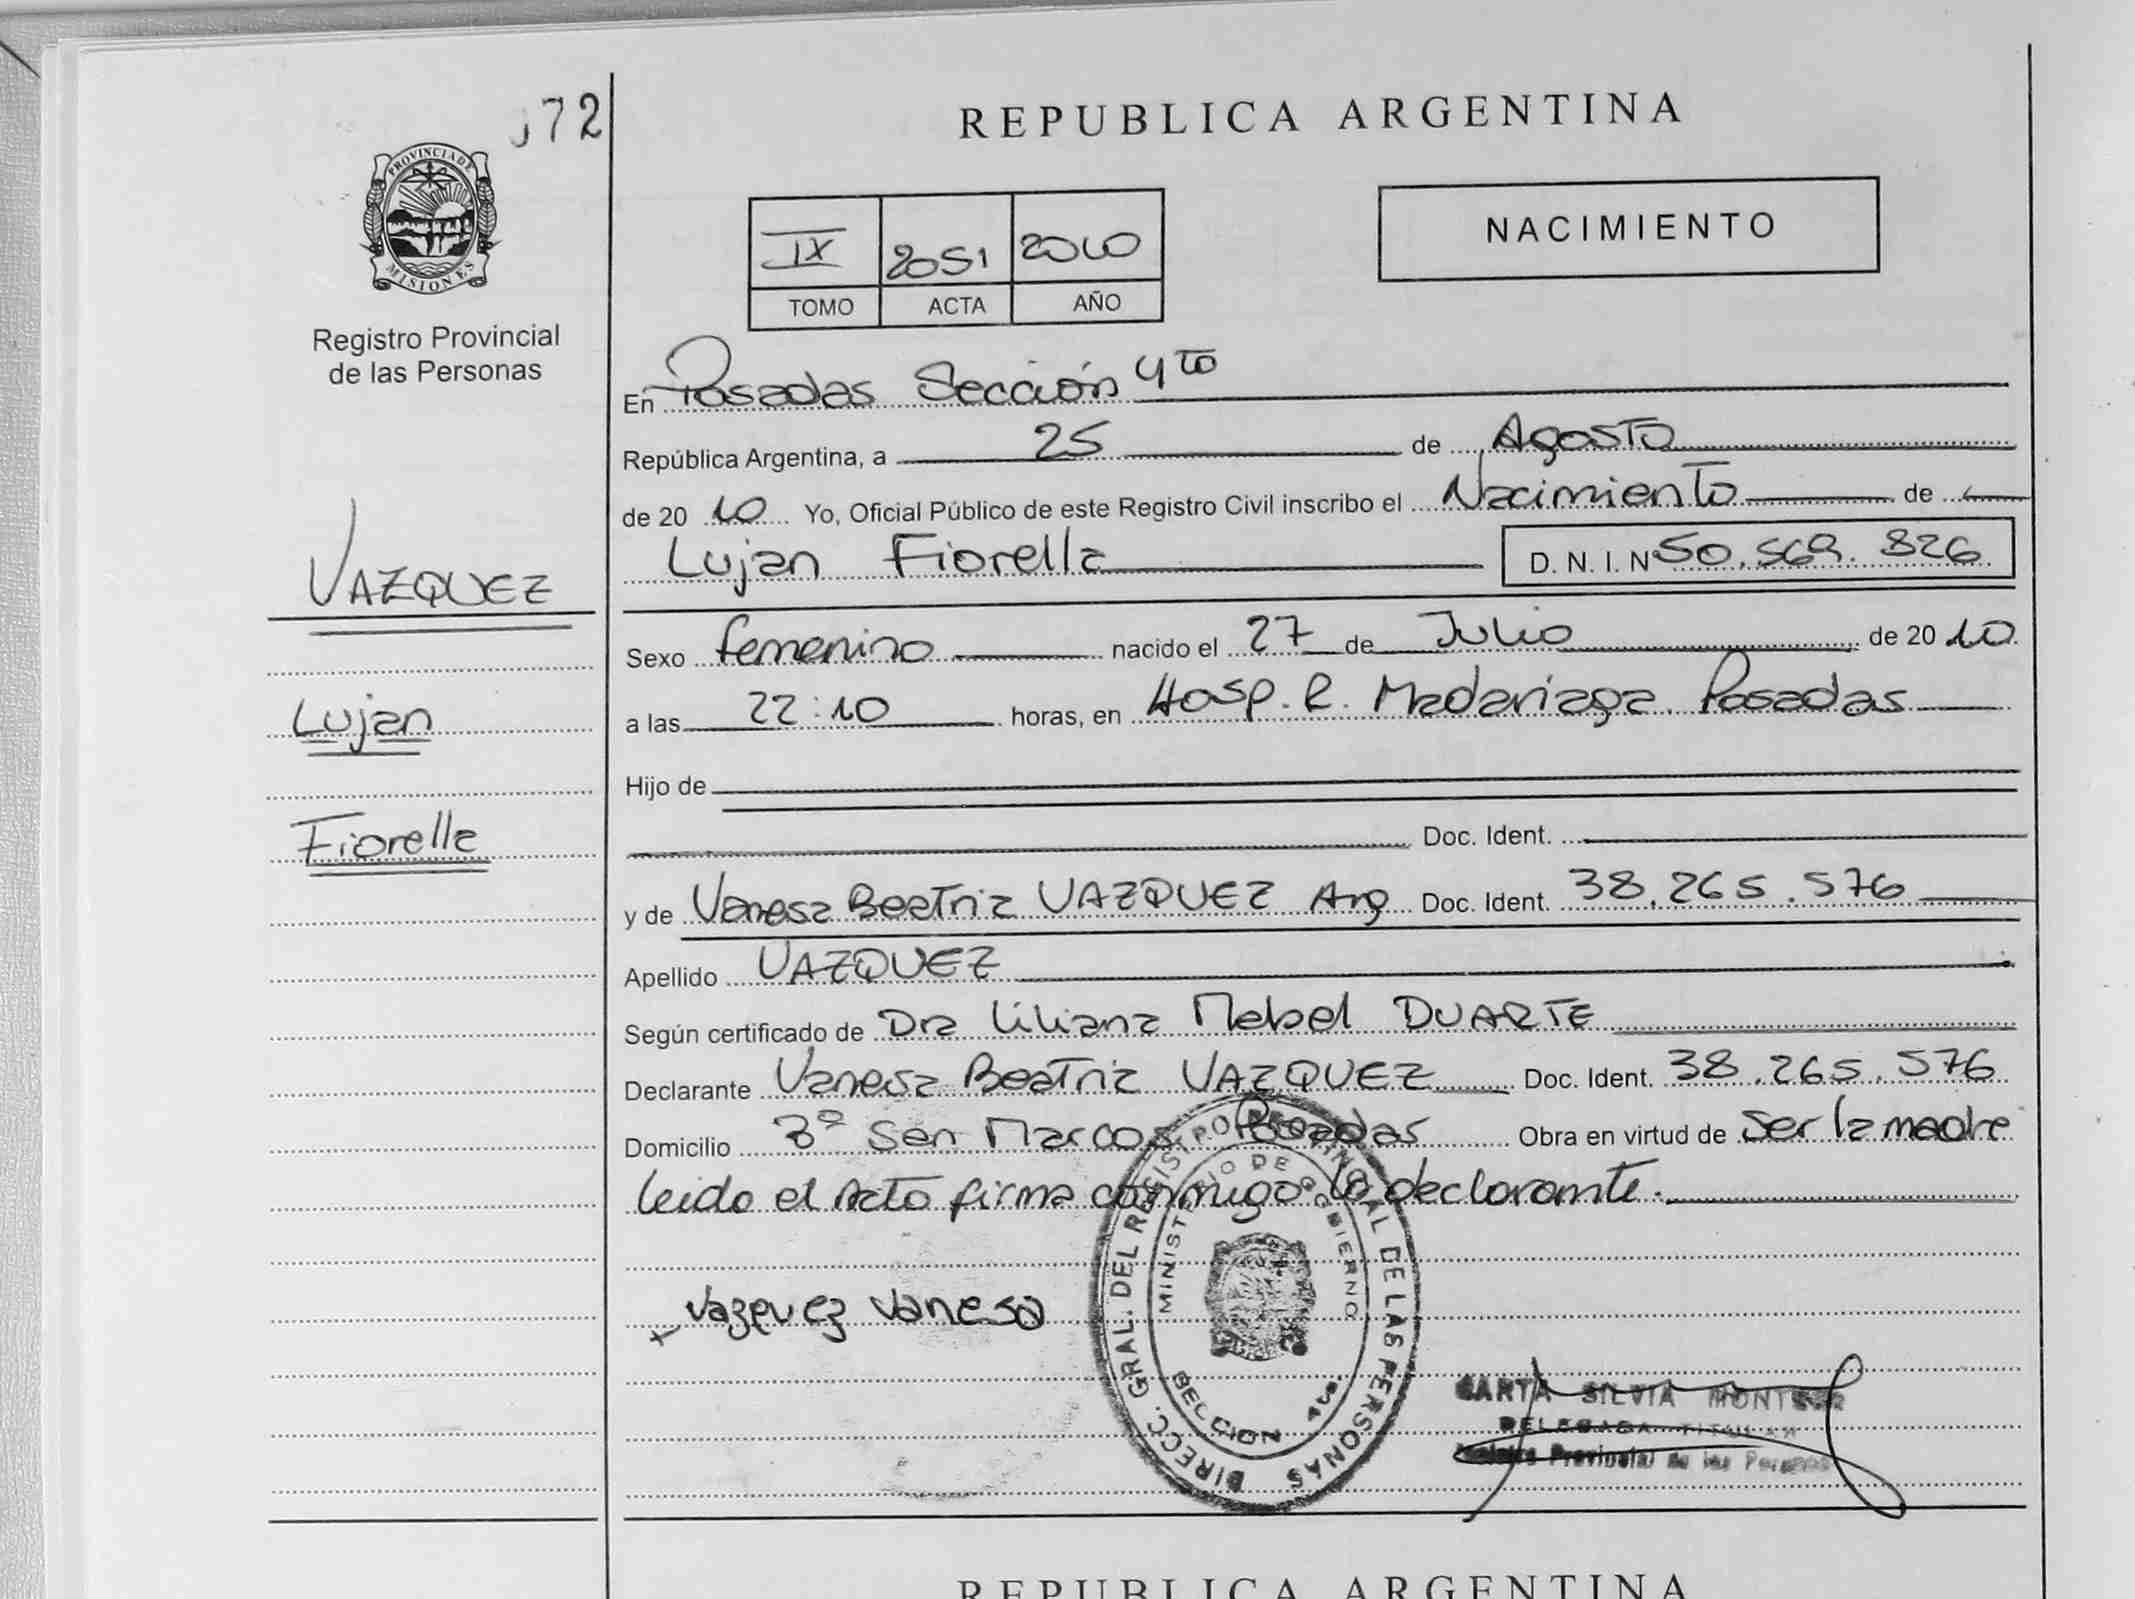 72
PROVINCIA DE
MISIONES
Registro Provincial
de las Personas
VAZQUEZ
Lujan
Fiorella
REPUBLICA ARGENTINA
IX 2051 2010
TOMO ACTA AÑO
NACIMIENTO
En Posadas Sección 4to
República Argentina, a 25 de Agosto
de 2010 Yo, Oficial Público de este Registro Civil inscribo el Nacimiento de
Lujan Fiorella D. N. I. Nº 50.569.826
Sexo femenino nacido el 27 de Julio de 2010
a las 22:10 horas, en Hosp. R. Madariaga. Posadas
Hijo de
Doc. Ident.
y de Vanesa Beatriz VAZQUEZ Arg Doc. Ident. 38.265.576
Apellido VAZQUEZ
Según certificado de Dra Liliana Mabel DUARTE
Declarante Vanesa Beatriz VAZQUEZ Doc. Ident. 38.265.576
Domicilio Bº San Marcos Posadas Obra en virtud de ser la madre
leido el Acto firma conmigo la declarante.
Vazquez Vanesa
DIRECC. GRAL. DEL REGISTRO PROVINCIAL DE LAS PERSONAS
MINISTERIO DE GOBIERNO
SECCION 4ta.
SILVIA
DELEGADA TITULAR
Provincial de las Personas
REPUBLICA ARGENTINA